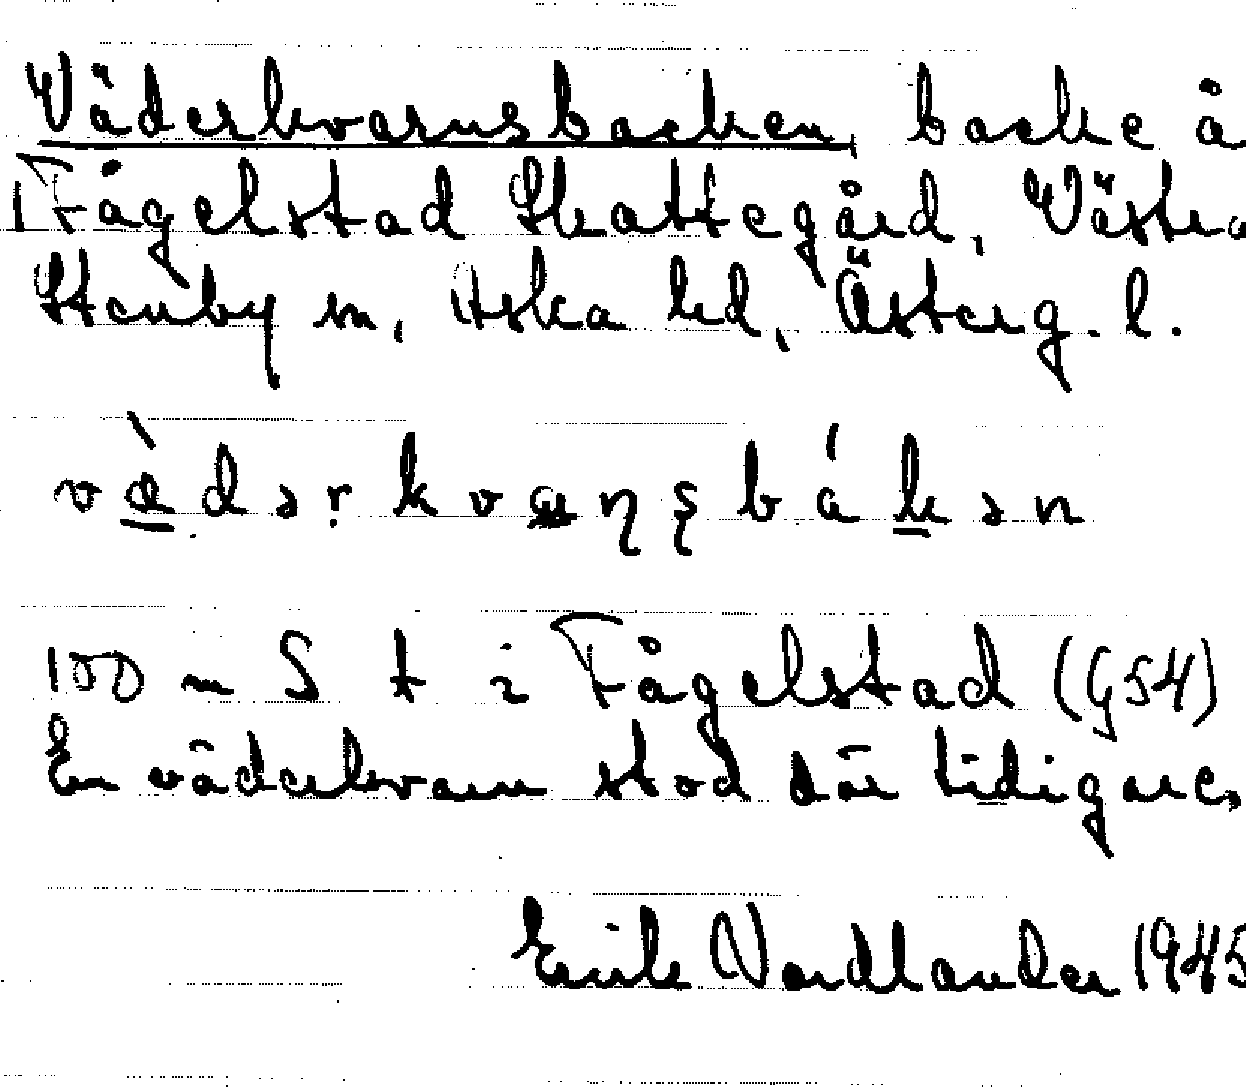 Väderkvarnsbacken, backe å
Fågelstad Skattegård, Västra
Stenby sn, Aska hd, Österg. l.
vǜdərkvaɳʂbákən
100 m S t i Fågelstad (G54)
En väderkvarn stod där tidigare.
Erik Nordlander 1945